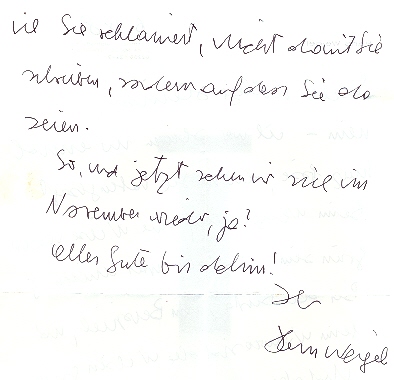 Sie reklamiert, nicht damit Sie
schreiben, sondern auf dass Sie da
seien.
So, und jetzt sehen wir uns im
November wieder, ja?
Alles Gute bis dahin!
Ihr
Hans Weigel